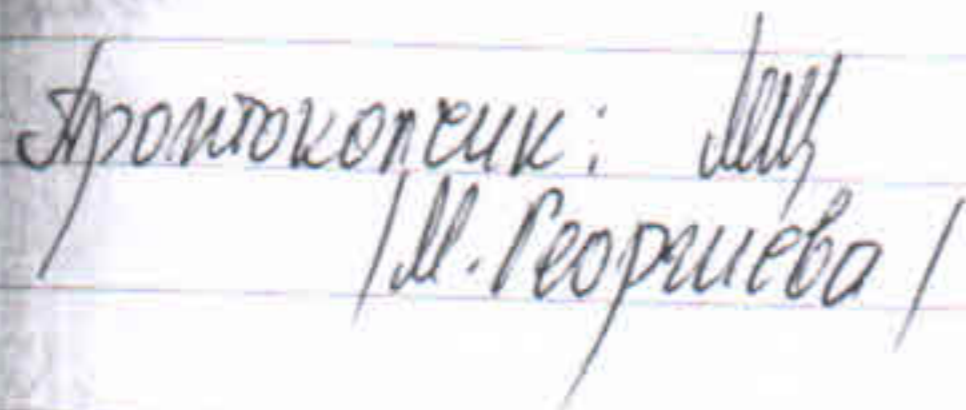 Протоколчик:
/М. Георгиева/